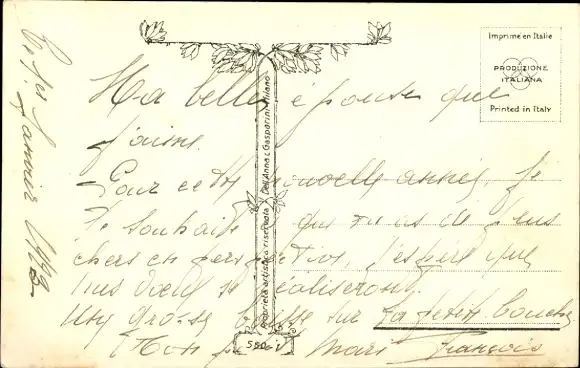 Ce 1er Janvier 1943
Ma belle épouse que
j'aime.
Pour cette nouvelle année, je
te souhaite que tu as de plus
chers en perspective, j'espère que
tes vœux se réaliseront.
Une grosse sur ta petite bouche
Ton mari François
Imprimé en Italie
PRODUZIONE
ITALIANA
Printed in Italy
Proprietà artistica riservata Dell'Anna & Gasparini-Milano
550